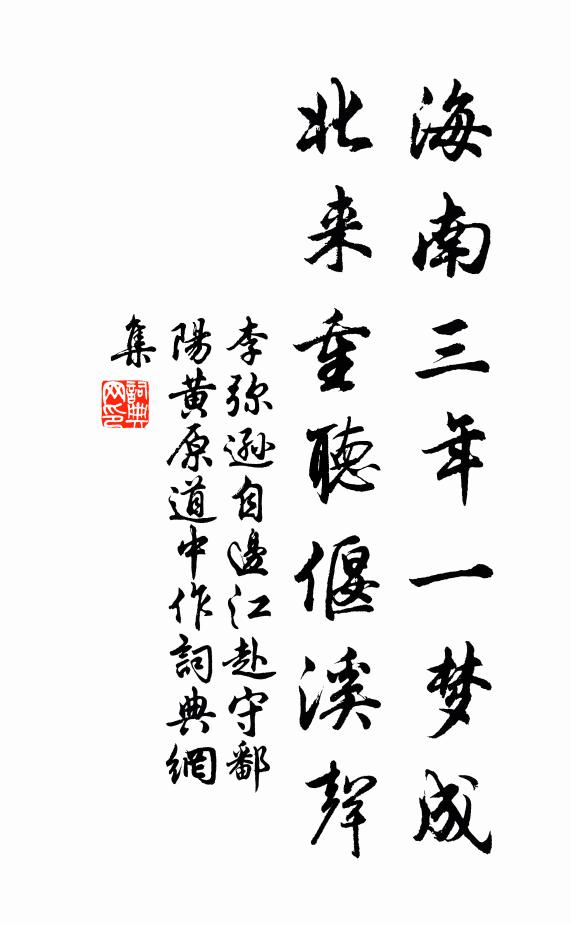 海南三年一梦成
北来重聽偃溪聲
李弥遜自邊江赴守鄱
陽黄原道中作詞典網
集
詞典
网印